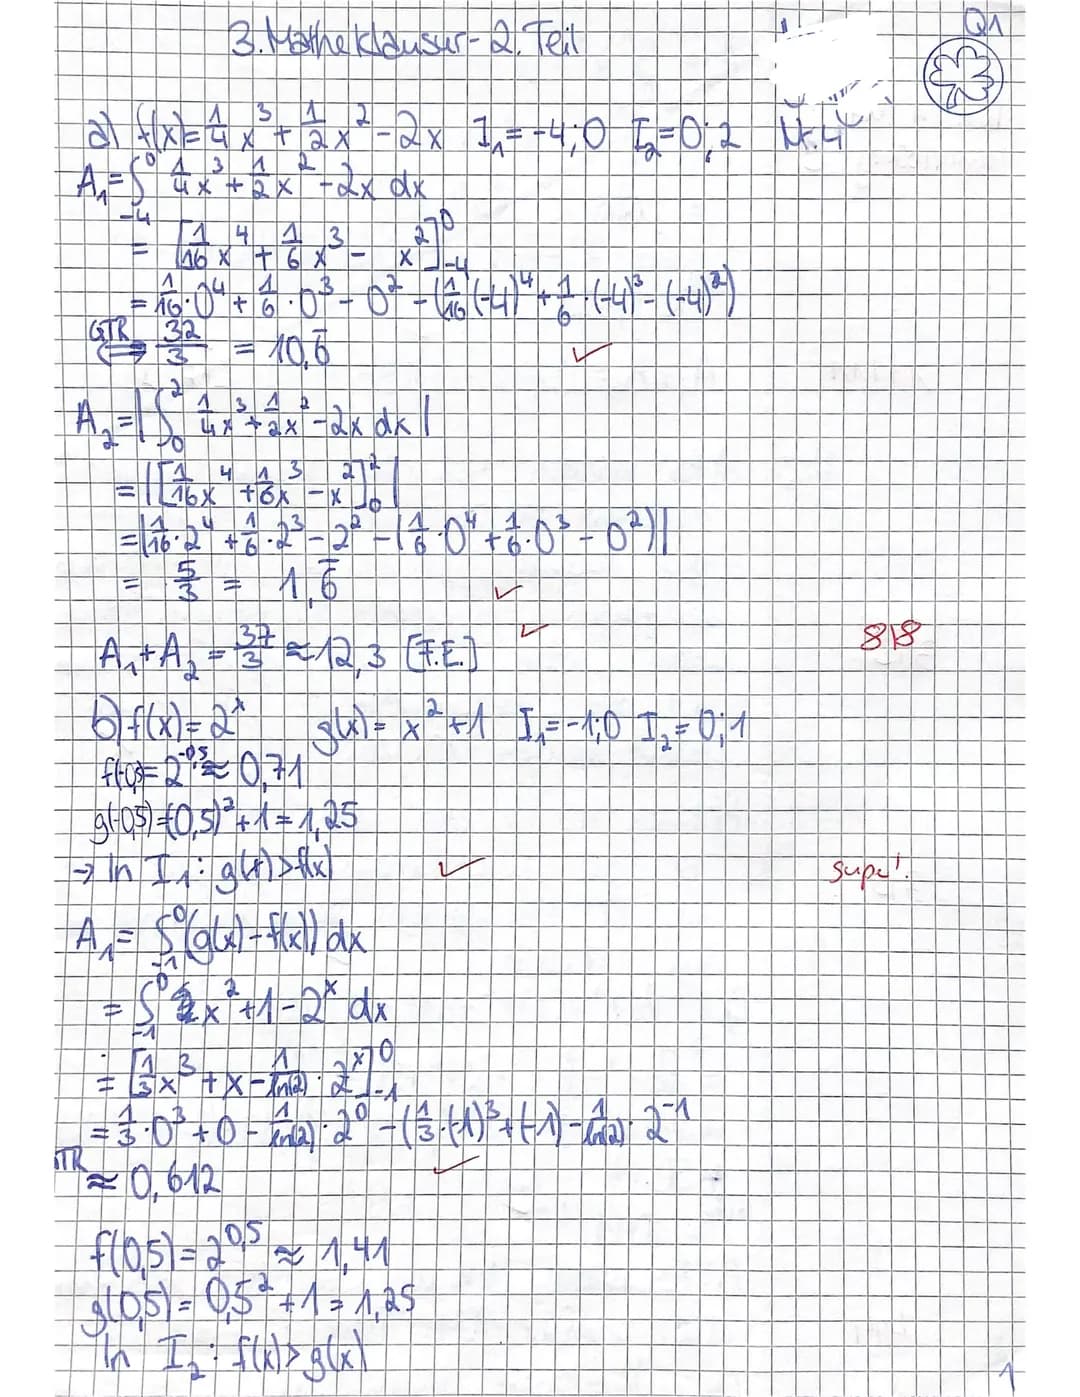 Q1
3. Matheklausur - 2. Teil
a) f(x) = 1/4 x³ + 1/2 x² - 2x I₁ = -4;0 I₂ = 0;2 Nr. 4
A₁ = ∫₋₄⁰ 1/4 x³ + 1/2 x² - 2x dx
= [1/16 x⁴ + 1/6 x³ - x²]₋₄⁰
= 1/16 · 0⁴ + 1/6 · 0³ - 0² - (1/16 (-4)⁴ + 1/6 · (-4)³ - (-4)²)
GTR ⟺ 32/3 = 10,6̅ ✓
A₂ = |∫₀² 1/4 x³ + 1/2 x² - 2x dx|
= |[1/16 x⁴ + 1/6 x³ - x²]₀²|
= |1/16 · 2⁴ + 1/6 · 2³ - 2² - (1/6 · 0⁴ + 1/6 · 0³ - 0²)|
= 5/3 = 1,6̅ ✓
A₁ + A₂ = 37/3 ≈ 12,3 [F.E.] ✓ 8|8
b) f(x) = 2ˣ g(x) = x² + 1 I₁ = -1;0 I₂ = 0;1
f(-0,5) = 2^-0,5 ≈ 0,71
g(-0,5) = (0,5)² + 1 = 1,25
→ In I₁: g(x) > f(x) ✓ super!
A₁ = ∫₋₁⁰ (g(x) - f(x)) dx
= ∫₋₁⁰ x² + 1 - 2ˣ dx
= [1/3 x³ + x - 1/ln(2) · 2ˣ]₋₁⁰
= 1/3 · 0³ + 0 - 1/ln(2) · 2⁰ - (1/3 · (-1)³ + (-1) - 1/ln(2) · 2⁻¹
TR ≈ 0,612 ✓
f(0,5) = 2^0,5 ≈ 1,41
g(0,5) = 0,5² + 1 = 1,25
In I₂: f(x) > g(x)
1